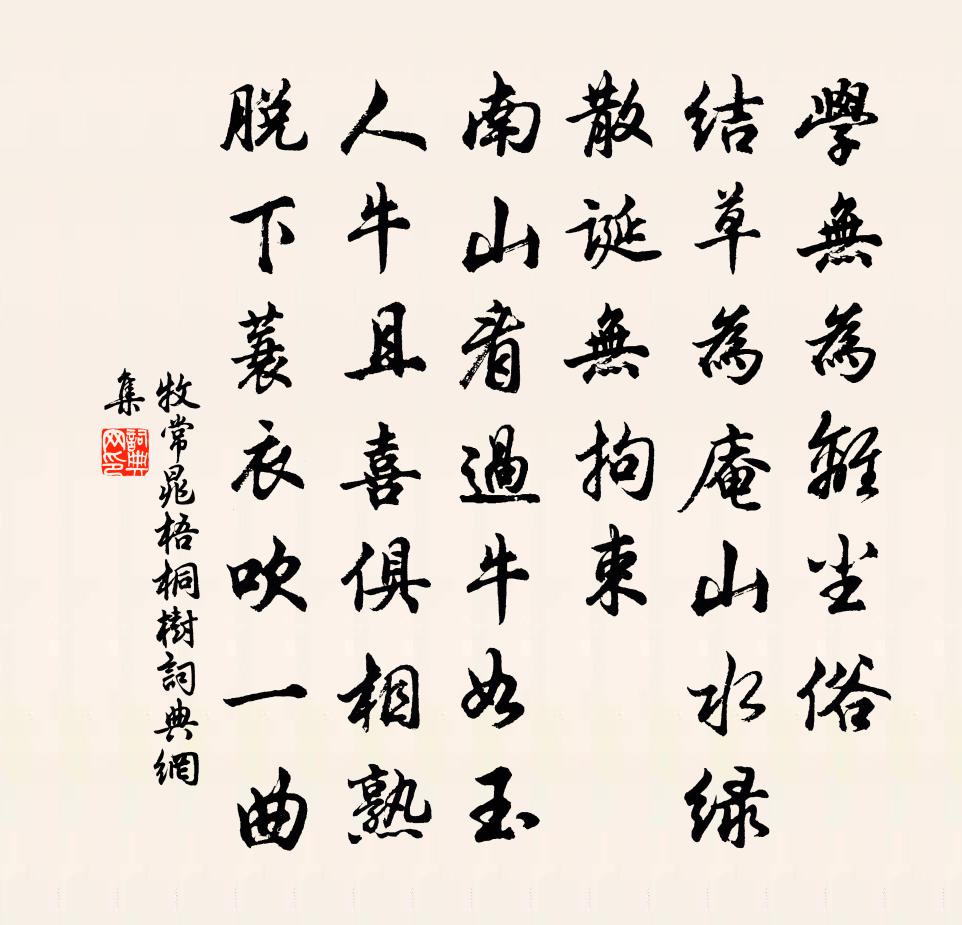 學無為離尘俗
結草為庵山水綠
散誕無拘束
南山看過牛如玉
人牛且喜俱相熟
脫下蓑衣吹一曲
牧常晁梧桐樹詞典網
集
詞典
网印